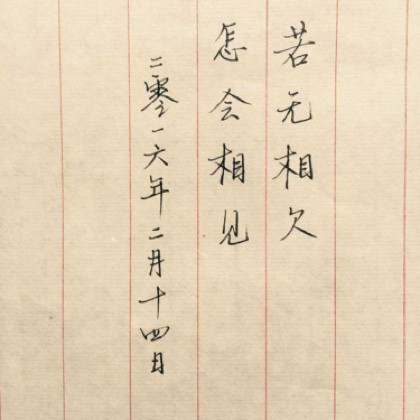 若无相欠
怎会相见
二零一六年二月十四日